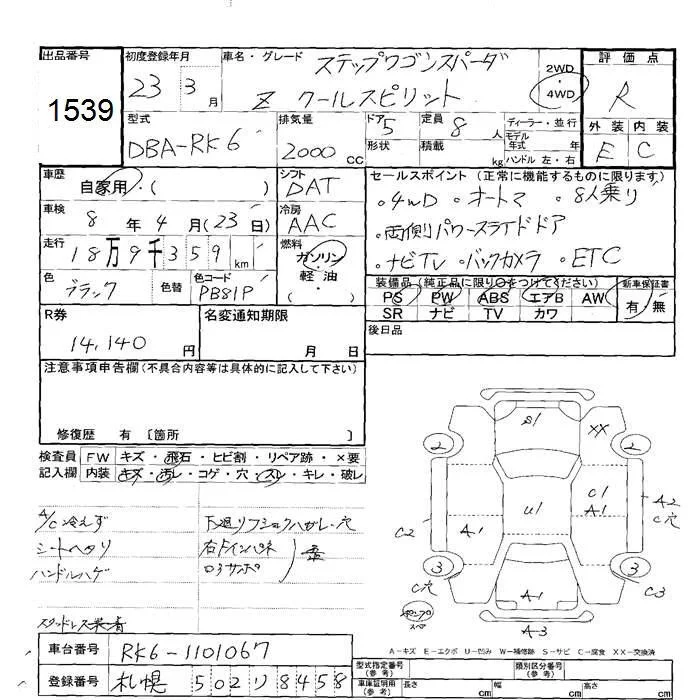 出品番号 初度登録年月 車名・グレード ステップワゴンスパーダ 評価点
1539 23 3月 Z クールスピリット 2WD・4WD R
型式 排気量 ドア 5 定員 8人 ディーラー・並行 外装 内装
DBA-RK6 2000cc 形状 積載 kg モデル年式 年 ハンドル 左・右 E C
車歴 自家用・( ) シフト DAT セールスポイント(正常に機能するものに限ります)
車検 8年4月(23日) 冷房 AAC ・4WD ・オートマ ・8人乗り
走行 18万9千359km 燃料 ガソリン・軽油 ( ・ ) ・両側パワースライドドア
・ナビTV ・バックカメラ ・ETC
色 ブラック 色替 色コード PB81P
装備品(純正品に限り○をつけてください) 新車保証書
PS PW ABS エアB AW 有・無
SR ナビ TV カワ
R券 14,140円 名変通知期限 月 日 後日品
注意事項申告欄(不具合内容等は具体的に記入して下さい)
修復歴 有 〔箇所 〕
検査員 FW キズ・飛石・ヒビ割・リペア跡・×要
記入欄 内装 キズ・汚レ・コゲ・穴・スレ・キレ・破レ
A/C冷えず 下廻リフショックハガレ・穴
シートヘタリ 右Fインパネ
ハンドルハゲ ロアサンポ
スタッドレス装着
S1 XX
2 2
U1 C1 A1 A2 C穴
C2 A1
3 C穴 3 C3
A-1
A-3
A-キズ E-エクボ U-凹み W-補修跡 S-サビ C-腐食 XX-交換済
車台番号 RK6-1101067
登録番号 札幌 502 リ 8458
型式指定番号(参考) 類別区分番号(参考)
車庫証明用(参考) 長さ cm 幅 cm 高さ cm